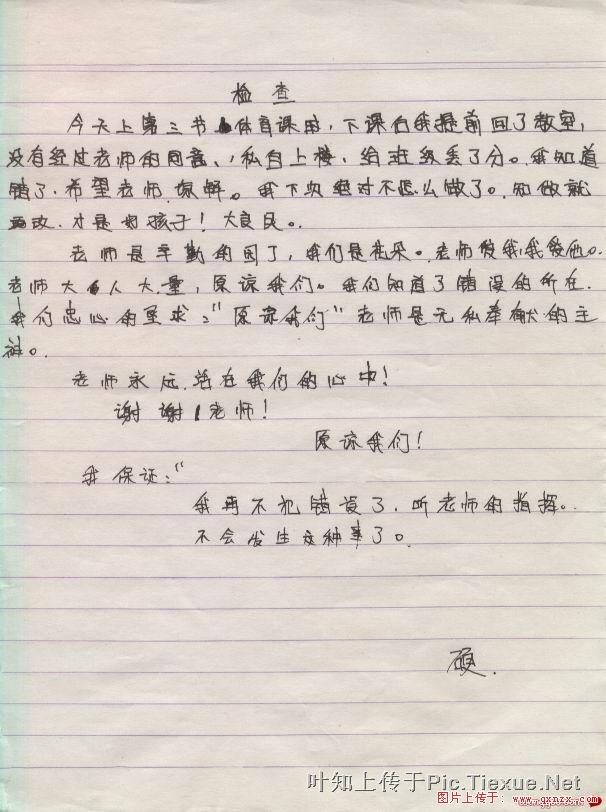 检查
今天上第三节体育课时,下课后我提前回了教室,
没有经过老师的同意、私自上楼,给班级丢了分。我知道
错了,希望老师 原解。我下次绝过不怎么做了。知做就
改,才是好孩子!大良民。
老师是辛勤的园丁,我们是花朵。老师爱我,我爱他。
老师大人大量,原谅我们。我们知道了错误的所在.
我们忠心的至求:“原谅我们”老师是无私奉献的主
老师永远总在我们的心中!
谢谢老师!
原谅我们!
我保证:“
我再不犯错误了,听老师的指挥。
不会发生这种事了。
硕.
叶知上传于Pic.Tiexue.Net
图片上传于:www.gxnzx.com